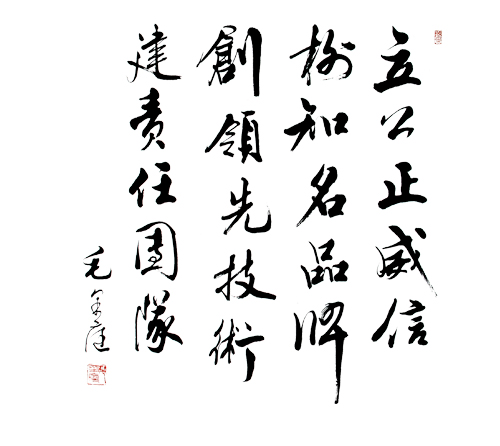 立公正威信
樹知名品牌
創領先技術
建責任團隊
毛金庭